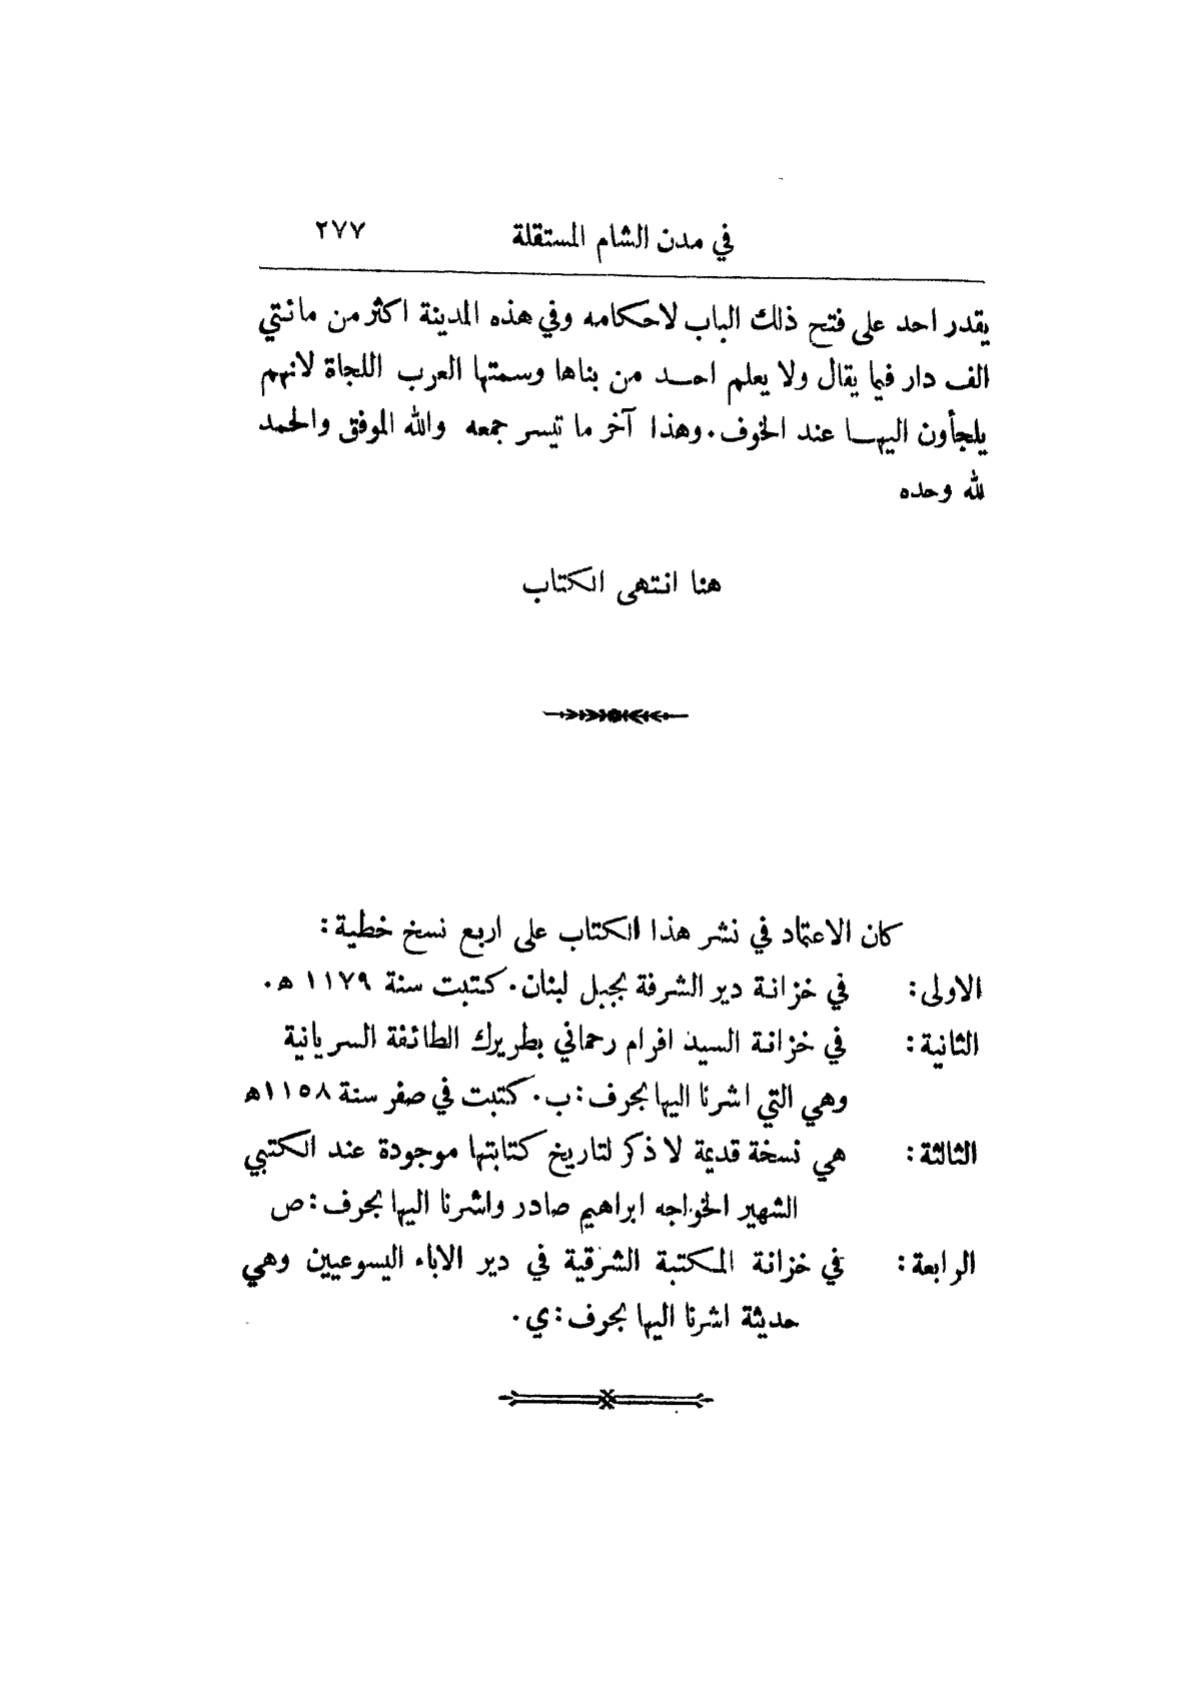 في مدن الشام المستقلة ٢٧٧
يقدر احد على فتح ذلك الباب لاحكامه وفي هذه المدينة اكثر من مائتي
الف دار فيما يقال ولا يعلم احد من بناها وسمتها العرب اللجاة لانهم
يلجأون اليها عند الخوف. وهذا آخر ما تيسر جمعه والله الموفق والحمد
لله وحده
هنا انتهى الكتاب
كان الاعتماد في نشر هذا الكتاب على اربع نسخ خطية:
الاولى: في خزانة دير الشرفة بجبل لبنان. كتبت سنة ١١٧٩ هـ.
الثانية: في خزانة السيد افرام رحماني بطريرك الطائفة السريانية
وهي التي اشرنا اليها بحرف: ب. كتبت في صفر سنة ١١٥٨ هـ
الثالثة: هي نسخة قديمة لا ذكر لتاريخ كتابتها موجودة عند الكتبي
الشهير الخواجه ابراهيم صادر واشرنا اليها بحرف: ص
الرابعة: في خزانة المكتبة الشرقية في دير الاباء اليسوعيين وهي
حديثة اشرنا اليها بحرف: ي.